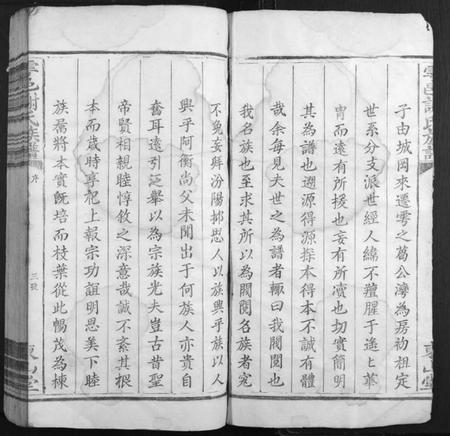 子由城岡來遷雲之葛公灣為居初祖定
世系分支派世經人緯不羶腥于遙遙華
冑而遠有所援也妄有所瀆也切實簡明
其為譜也遡源得源探本得本不誠有體
哉余每見夫世之為譜者輒曰我閥閱也
我名族也至求其所以為閥閱名族者寃
不兔妄拜汾陽鄙思人以族興乎族以人
興乎阿衡尚父未聞出于何族人亦貴自
奮耳遠引泛舉以為宗族光夫豈古昔聖
帝賢相親睦惇敘之深意哉誠不紊其根
本而歲時享祀上報宗功誼明恩美下睦
族屬將本實旣培而枝葉從此暢茂為棟
雲邑謝氏族譜
序
三
東山堂